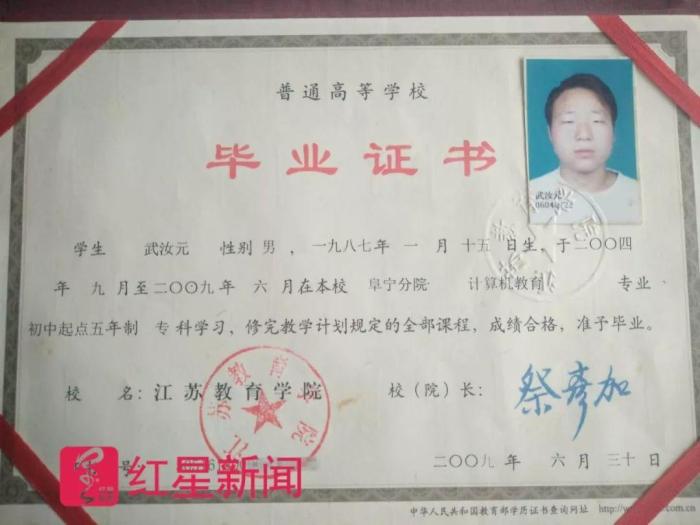 普通高等学校
毕业证书
武汝元
学生 武汝元 性别 男 ，一九八七年 一 月 十五 日生，于二〇〇四
年 九 月至二〇〇九年 六 月在本校 阜宁分院 计算机教育 专业
初中起点五年制 专 科学习，修完教学计划规定的全部课程，成绩合格，准予毕业。
校 名：江苏教育学院 校（院）长：
江苏教育学院
红星新闻
二〇〇九 年 六 月 三十 日
中华人民共和国教育部学历证书查询网址